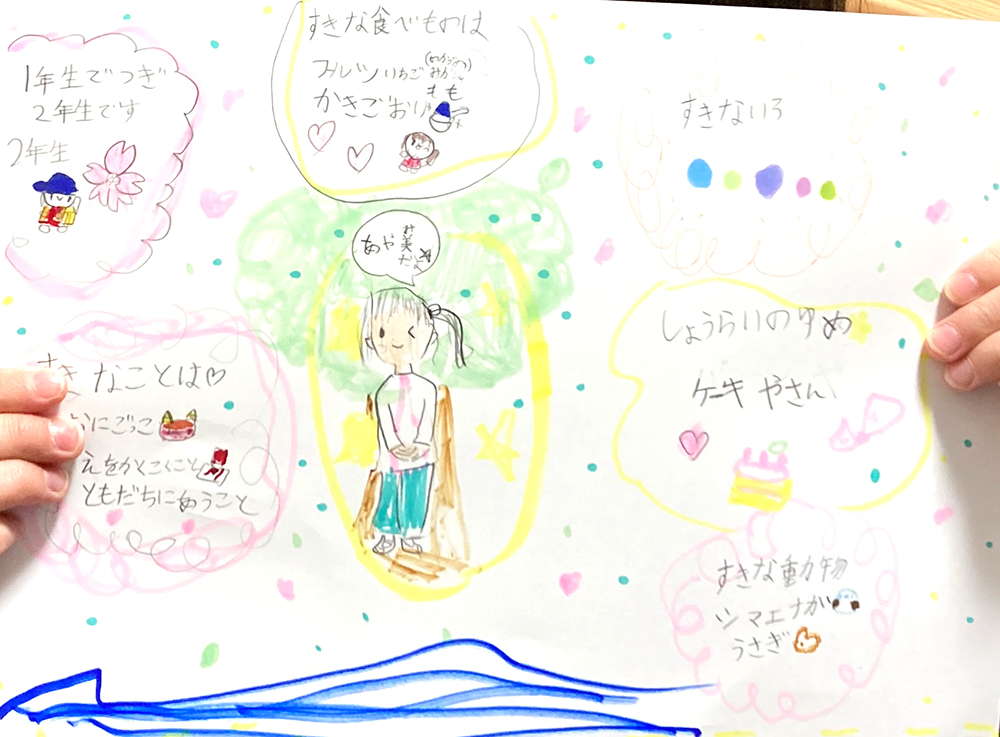 1年生でつぎ
2年生です
2年生
すきな食べものは
フルーツいちご
みかん
もも
かきごおり
すきないろ
あや美だよ
しょうらいのゆめ
ケーキやさん
きなことは♡
にごっこ
えをかくこと
ともだちにあうこと
すきな動物
シマエナガ
うさぎ